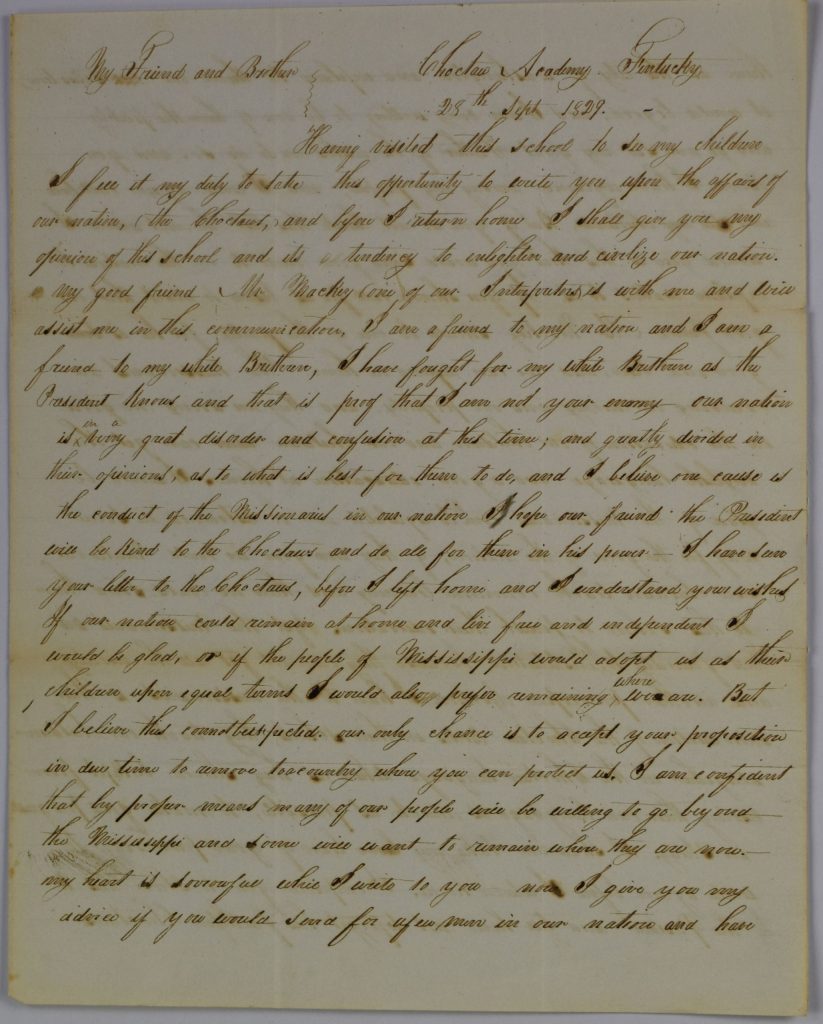 My Friend and Brother
Choctaw Academy. Kentucky
28th Sept 1829. -
Having visited this school to see my children
I feel it my duty to take this opportunity to write you upon the affairs of
our nation, (the Choctaws,) and before I return home I shall give you my
opinion of this school and its tendency to enlighten and civilize our nation.
my good friend Mr. Mackey (one of our Interpreters) is with me and will
assist me in this communication, I am a friend to my nation and I am a
friend to my white Brethren, I have fought for my white Brethren as the
President Knows and that is proof that I am not your enemy our nation
is in a very great disorder and confusion at this time; and greatly divided in
their opinions, as to what is best for them to do, and I believe one cause is
the conduct of the Missionaries in our nation I hope our friend the President
will be kind to the Choctaws and do all for them in his power - I have seen
your letter to the Choctaws, before I left home and I understand your wishes
If our nation could remain at home and live free and independent I
would be glad, or if the people of Mississippi would adopt us as their
children upon equal terms I would also prefer remaining where we are. But
I believe this cannot be expected. our only chance is to accept your proposition
in due time to remove to a country where you can protect us. I am confident
that by proper means many of our people will be willing to go beyond
the Mississippi and some will want to remain where they are now.
my heart is sorrowful while I write to you now I give you my
advice if you would send for a few men in our nation and have